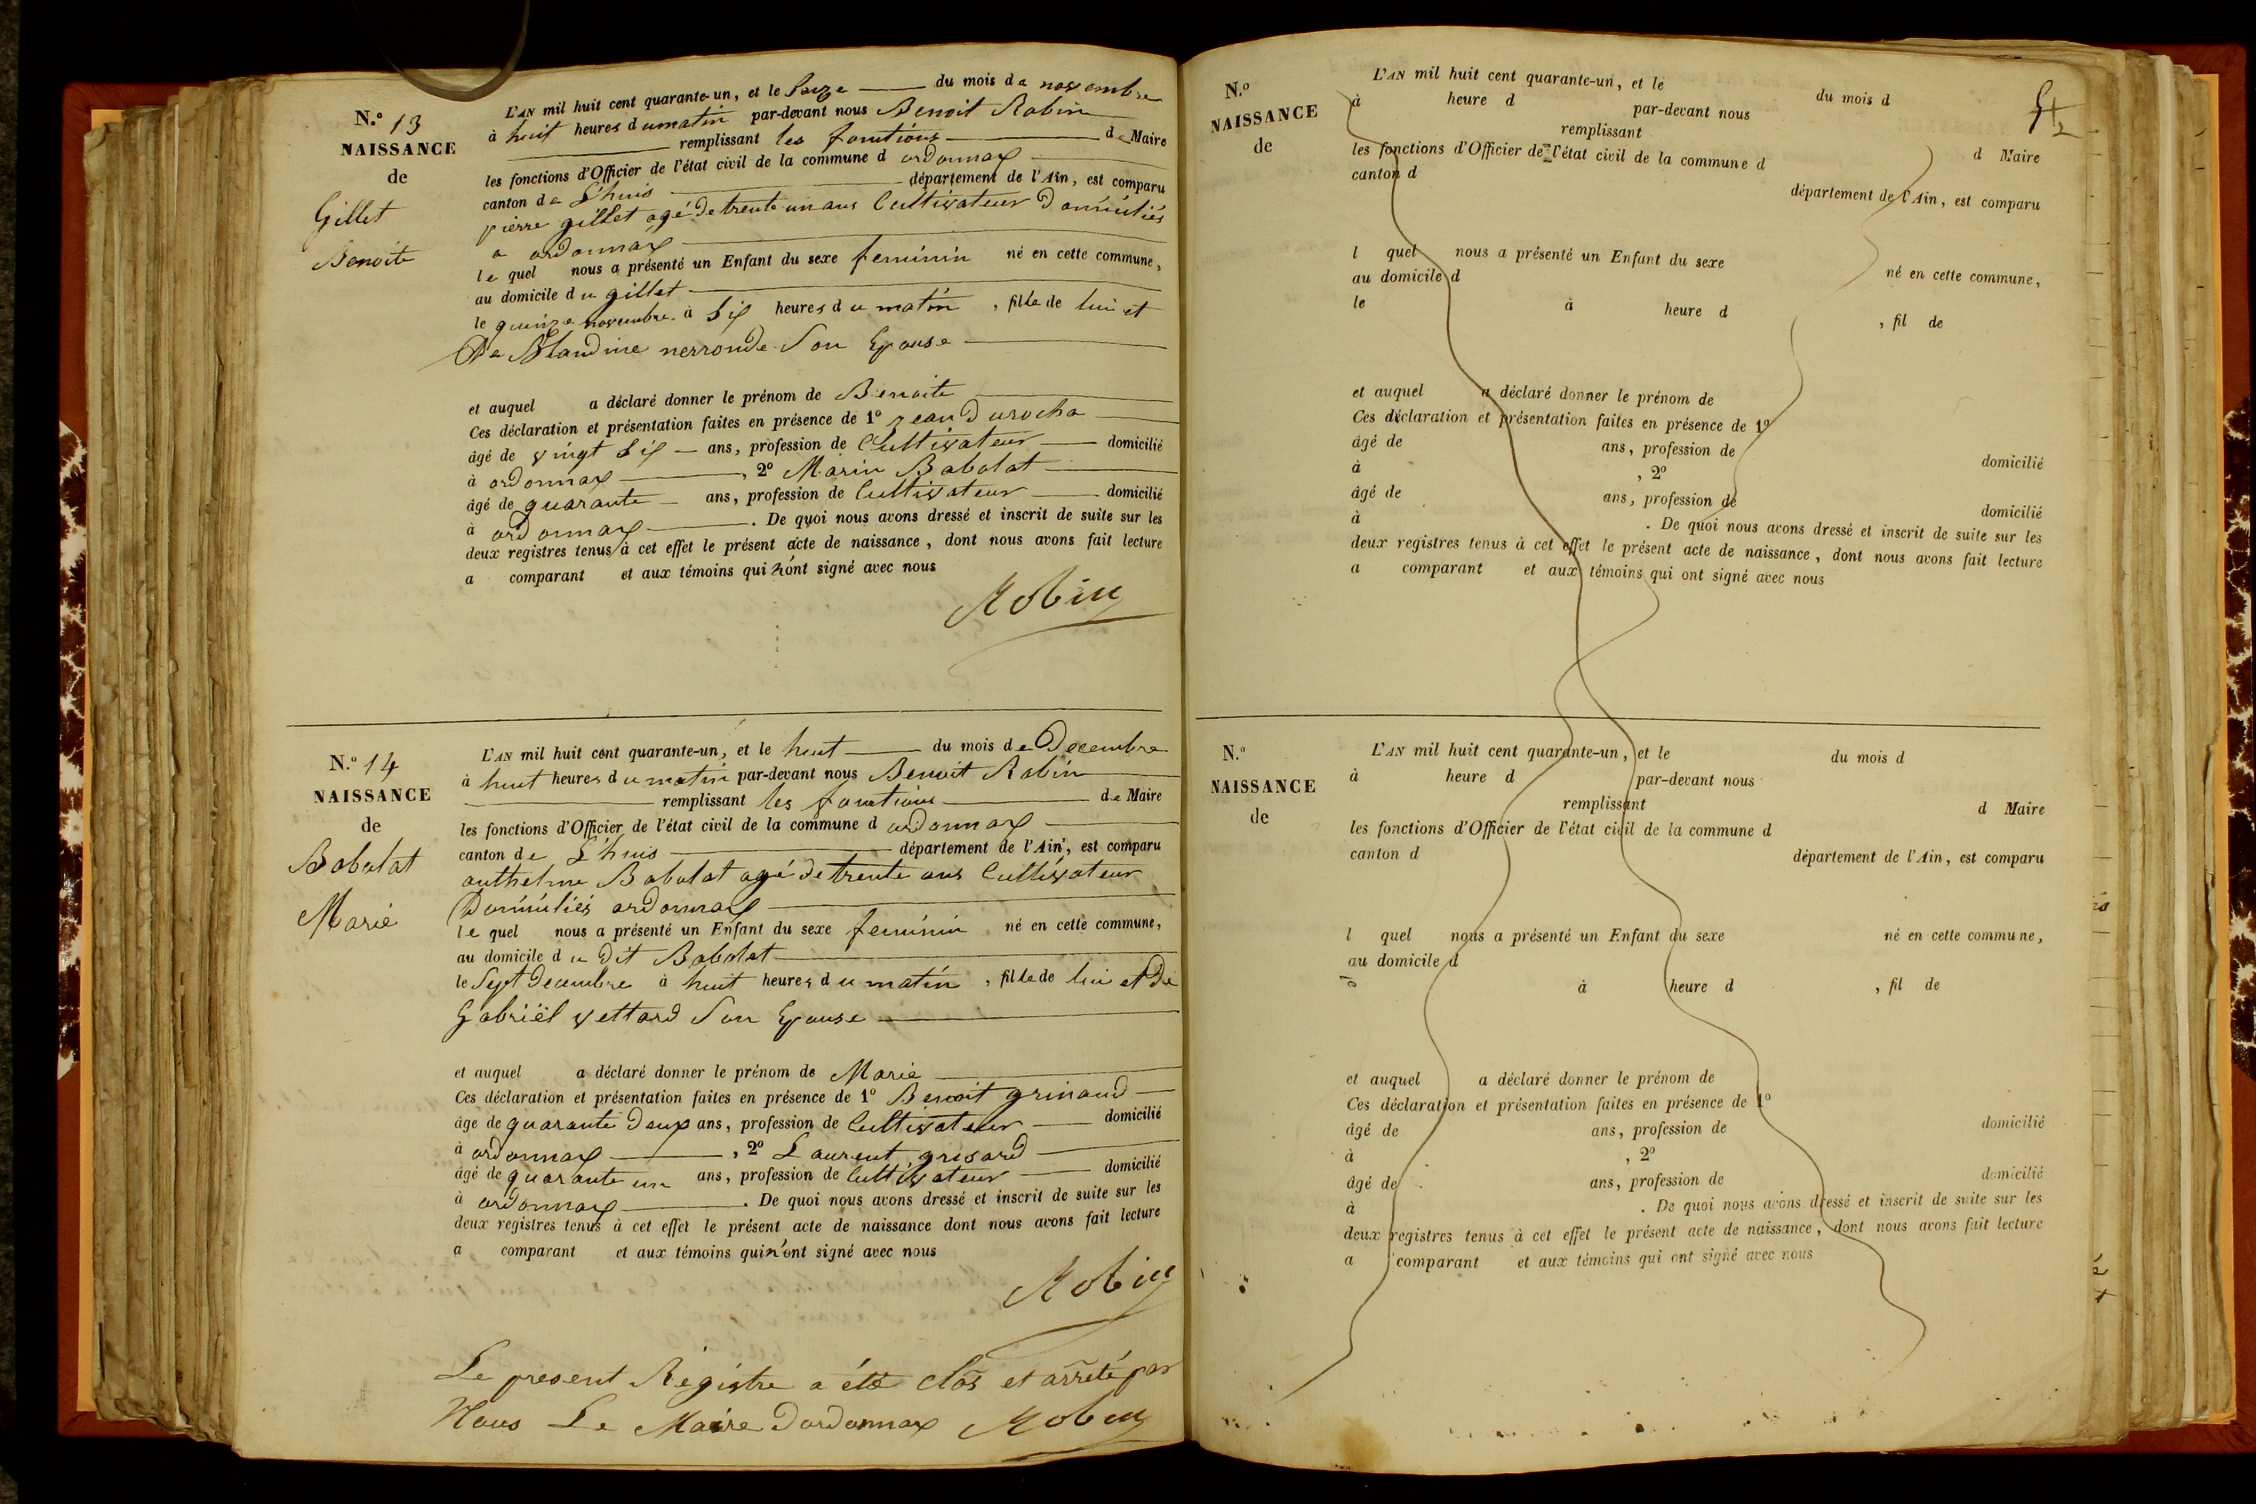 N.º 13
NAISSANCE
de
Gillet
Benoite
L'AN mil huit cent quarante-un, et le Seize du mois de novembre
à huit heures du matin par-devant nous Benoit Robin
remplissant les fonctions de Maire
les fonctions d'Officier de l'état civil de la commune d ordonnax
canton de L'huis département de l'Ain, est comparu
pierre gillet agé de trente un ans Cultivateur Domiciliés
a ordonnax
le quel nous a présenté un Enfant du sexe feminin né en cette commune,
au domicile du gillet
le quinze novembre à Six heures du matin, fille de lui et
De Blandine nerronde Son Epouse
et auquel a déclaré donner le prénom de Benoite
Ces déclaration et présentation faites en présence de 1º jean Durocha
âgé de vingt Six ans, profession de Cultivateur domicilié
à ordonnax, 2º Marin Babolat
âgé de quarante ans, profession de Cultivateur domicilié
à ordonnax. De quoi nous avons dressé et inscrit de suite sur les
deux registres tenus à cet effet le présent acte de naissance, dont nous avons fait lecture
a comparant et aux témoins qui n'ont signé avec nous
Robin
N.º 14
NAISSANCE
de
Babolat
Marie
L'AN mil huit cent quarante-un, et le huit du mois de Decembre
à huit heures du matin par-devant nous Benoit Robin
remplissant les fonctions de Maire
les fonctions d'Officier de l'état civil de la commune d ordonnax
canton de L'huis département de l'Ain, est comparu
anthelme Babolat agé de trente ans Cultivateur
Domiciliés ordonnax
le quel nous a présenté un Enfant du sexe feminin né en cette commune,
au domicile du dit Babolat
le Sept Decembre à huit heures du matin, fille de lui et De
Gabriël vettard Son Epouse
et auquel a déclaré donner le prénom de Marie
Ces déclaration et présentation faites en présence de 1º Benoit grinand
âge de quarante Deux ans, profession de Cultivateur domicilié
à ordonnax, 2º Laurent grisard
âgé de quarante un ans, profession de Cultivateur domicilié
à ordonnax. De quoi nous avons dressé et inscrit de suite sur les
deux registres tenus à cet effet le présent acte de naissance dont nous avons fait lecture
a comparant et aux témoins qui n'ont signé avec nous
Robin
Le present Régistre a été Clos et arrêté par
Nous Le Maire Dordonnax Robin
N.º
NAISSANCE
de
L'AN mil huit cent quarante-un, et le du mois d
à heure d par-devant nous
remplissant d Maire
les fonctions d'Officier de l'état civil de la commune d
canton d département de l'Ain, est comparu
l quel nous a présenté un Enfant du sexe né en cette commune,
au domicile d
le à heure d , fil de
et auquel a déclaré donner le prénom de
Ces déclaration et présentation faites en présence de 1º
âgé de ans, profession de domicilié
à , 2º
âgé de ans, profession de domicilié
à . De quoi nous avons dressé et inscrit de suite sur les
deux registres tenus à cet effet le présent acte de naissance, dont nous avons fait lecture
a comparant et aux témoins qui ont signé avec nous
N.º
NAISSANCE
de
L'AN mil huit cent quarante-un, et le du mois d
à heure d par-devant nous
remplissant d Maire
les fonctions d'Officier de l'état civil de la commune d
canton d département de l'Ain, est comparu
l quel nous a présenté un Enfant du sexe né en cette commune,
au domicile d
à heure d , fil de
et auquel a déclaré donner le prénom de
Ces déclaration et présentation faites en présence de 1º
âgé de ans, profession de domicilié
à , 2º
âgé de ans, profession de domicilié
à . De quoi nous avons dressé et inscrit de suite sur les
deux registres tenus à cet effet le présent acte de naissance, dont nous avons fait lecture
a comparant et aux témoins qui ont signé avec nous